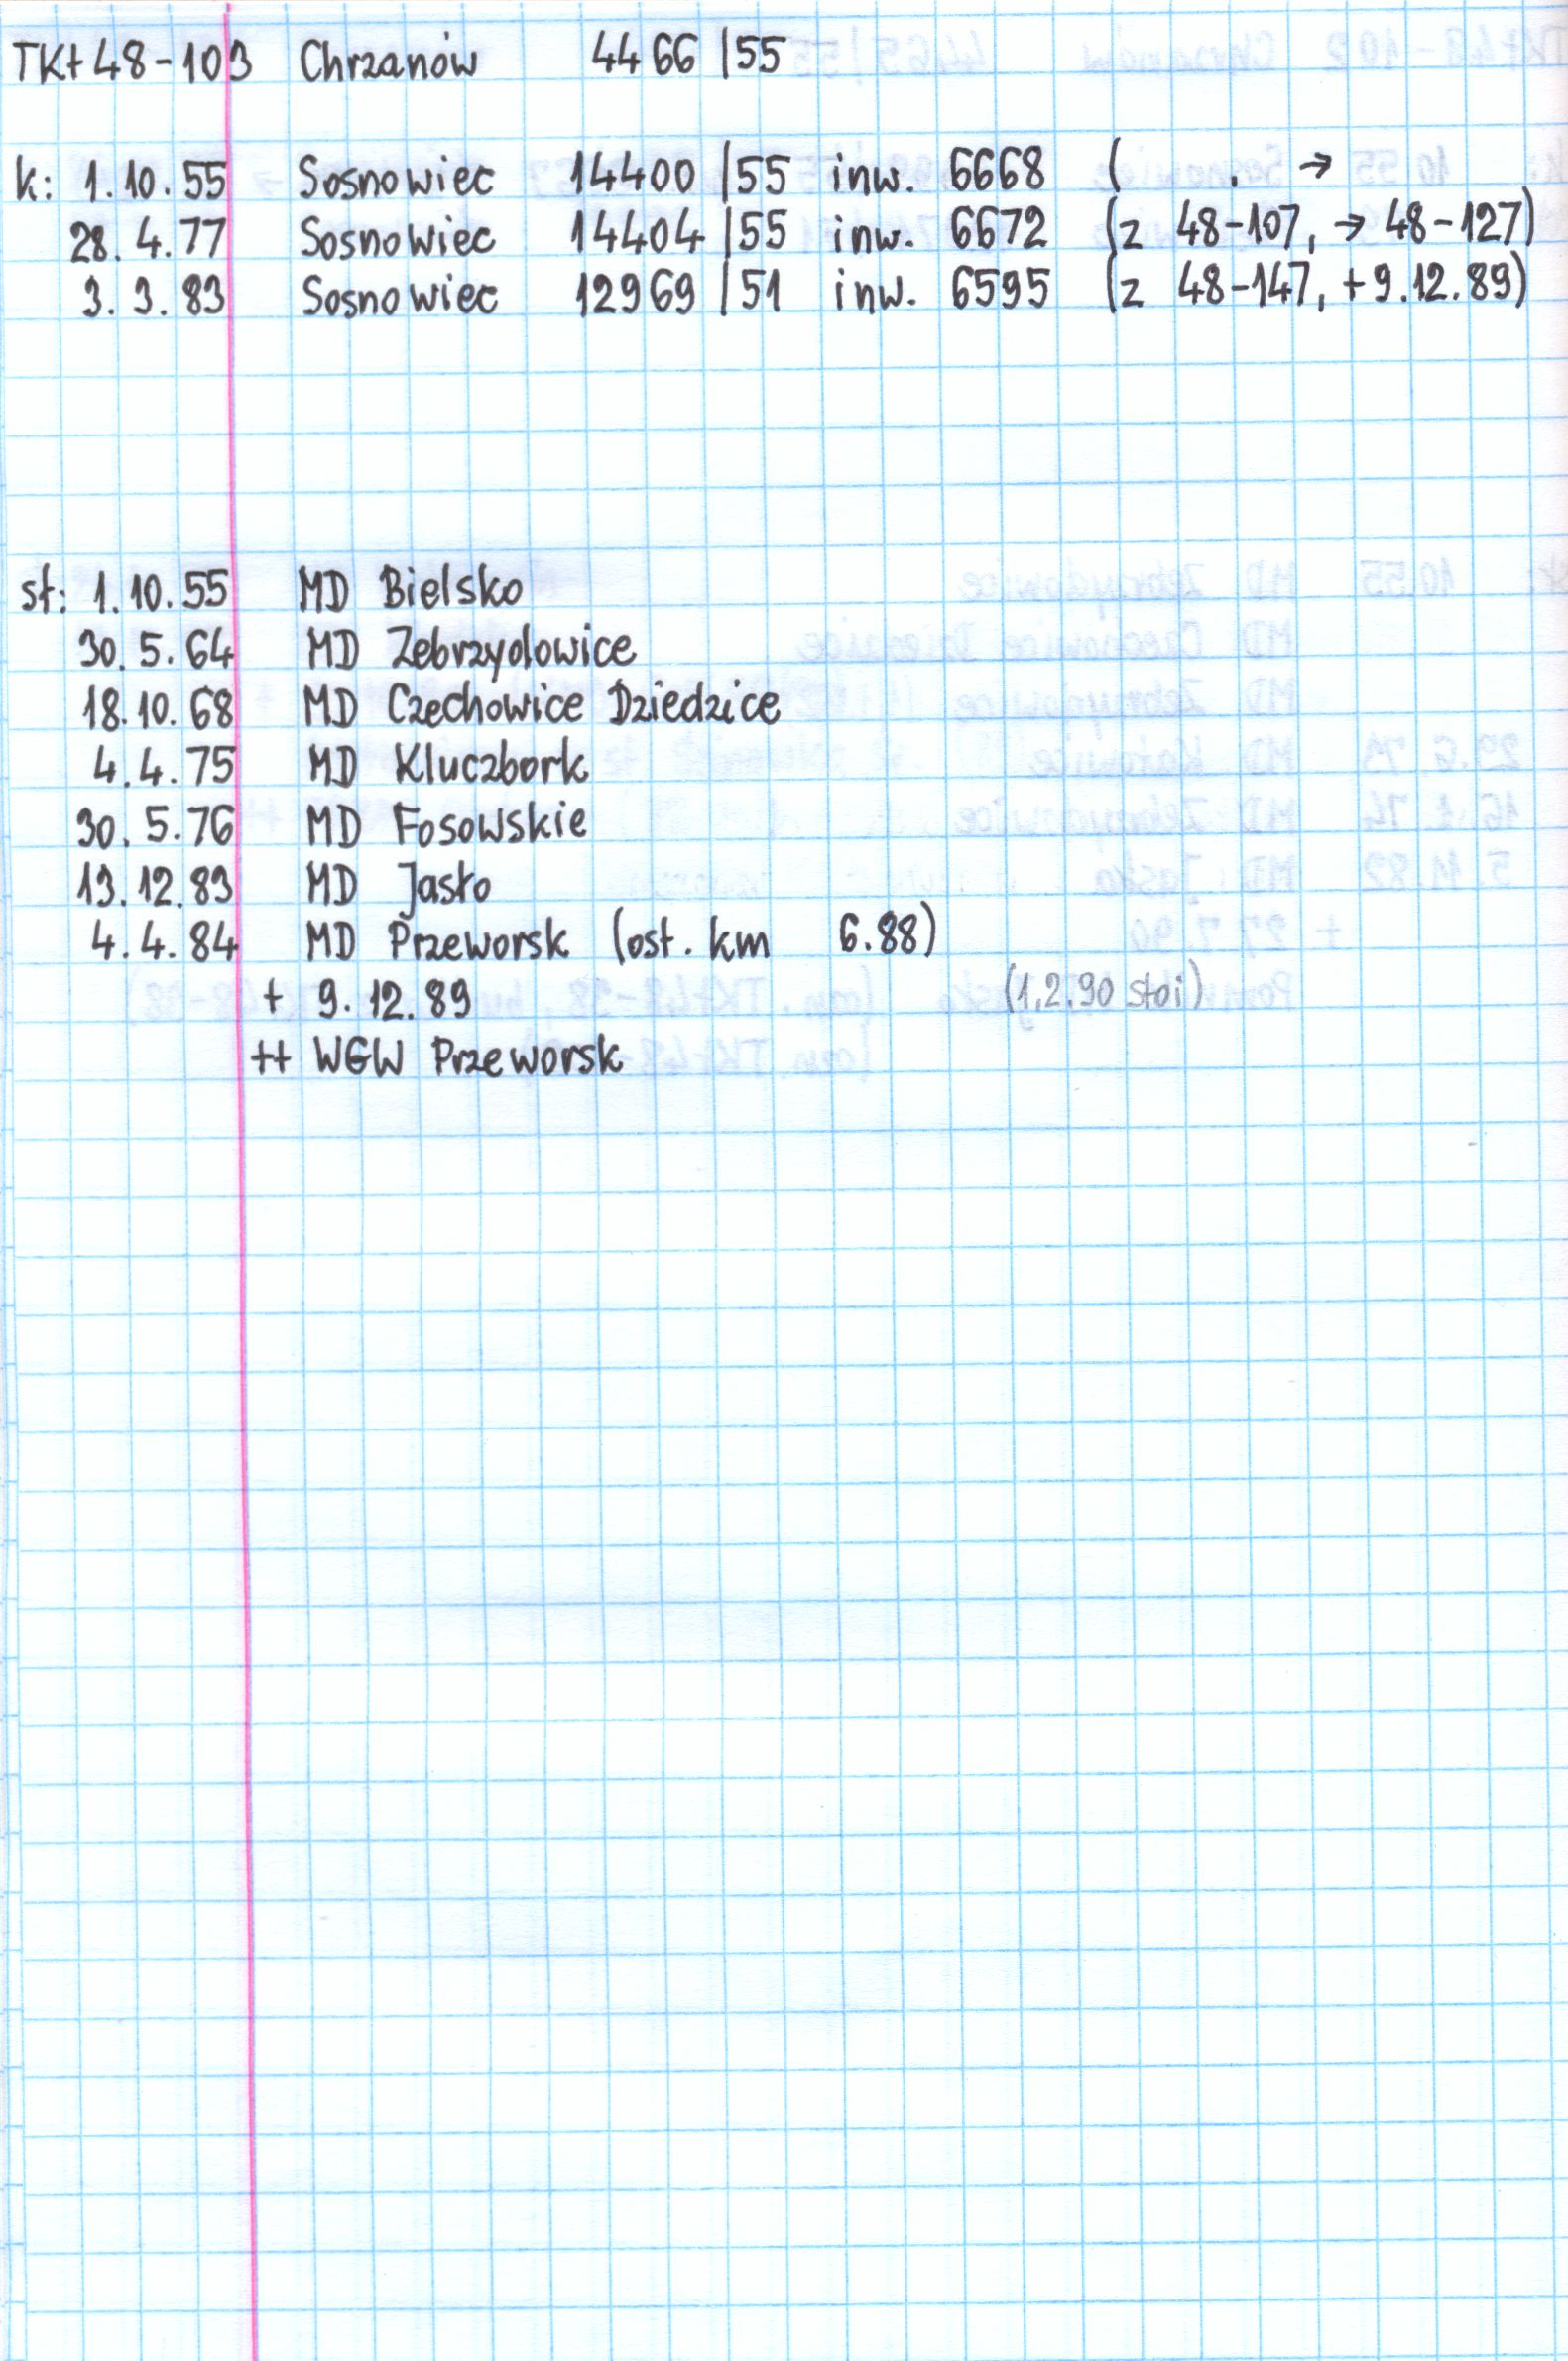 TKt48-103 Chrzanów 4466/55
k: 1.10.55 Sosnowiec 14400/55 inw. 6668 ( . →
28.4.77 Sosnowiec 14404/55 inw. 6672 (z 48-107, → 48-127)
3.3.83 Sosnowiec 12969/51 inw. 6595 (z 48-147, +9.12.89)
st: 1.10.55 MD Bielsko
30.5.64 MD Zebrzydowice
18.10.68 MD Czechowice Dziedzice
4.4.75 MD Kluczbork
30.5.76 MD Fosowskie
13.12.83 MD Jasło
4.4.84 MD Przeworsk (ost. km 6.88)
+ 9.12.89 (1,2.90 stoi)
++ WGW Przeworsk